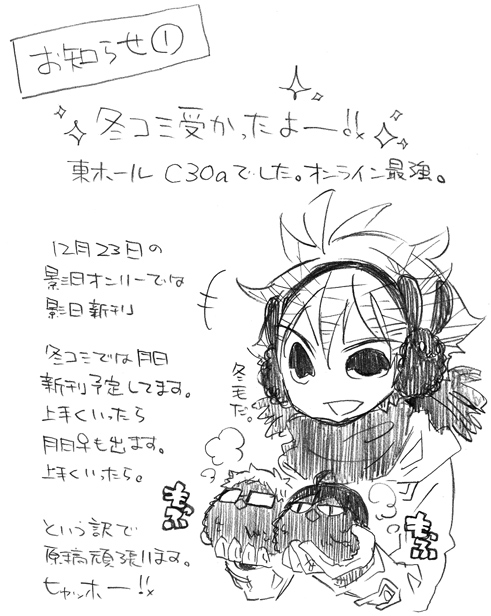 お知らせ①
冬コミ受かったよー!!
東ホール C30aでした。オンライン最強。
12月23日の
影日オンリーでは
影日新刊
冬コミでは月日
新刊予定してます。
上手くいったら
月日本も出ます。
上手くいったら。
という訳で
原稿頑張ります。
ヒャッホー!!
冬毛だ。
もふ
もふ